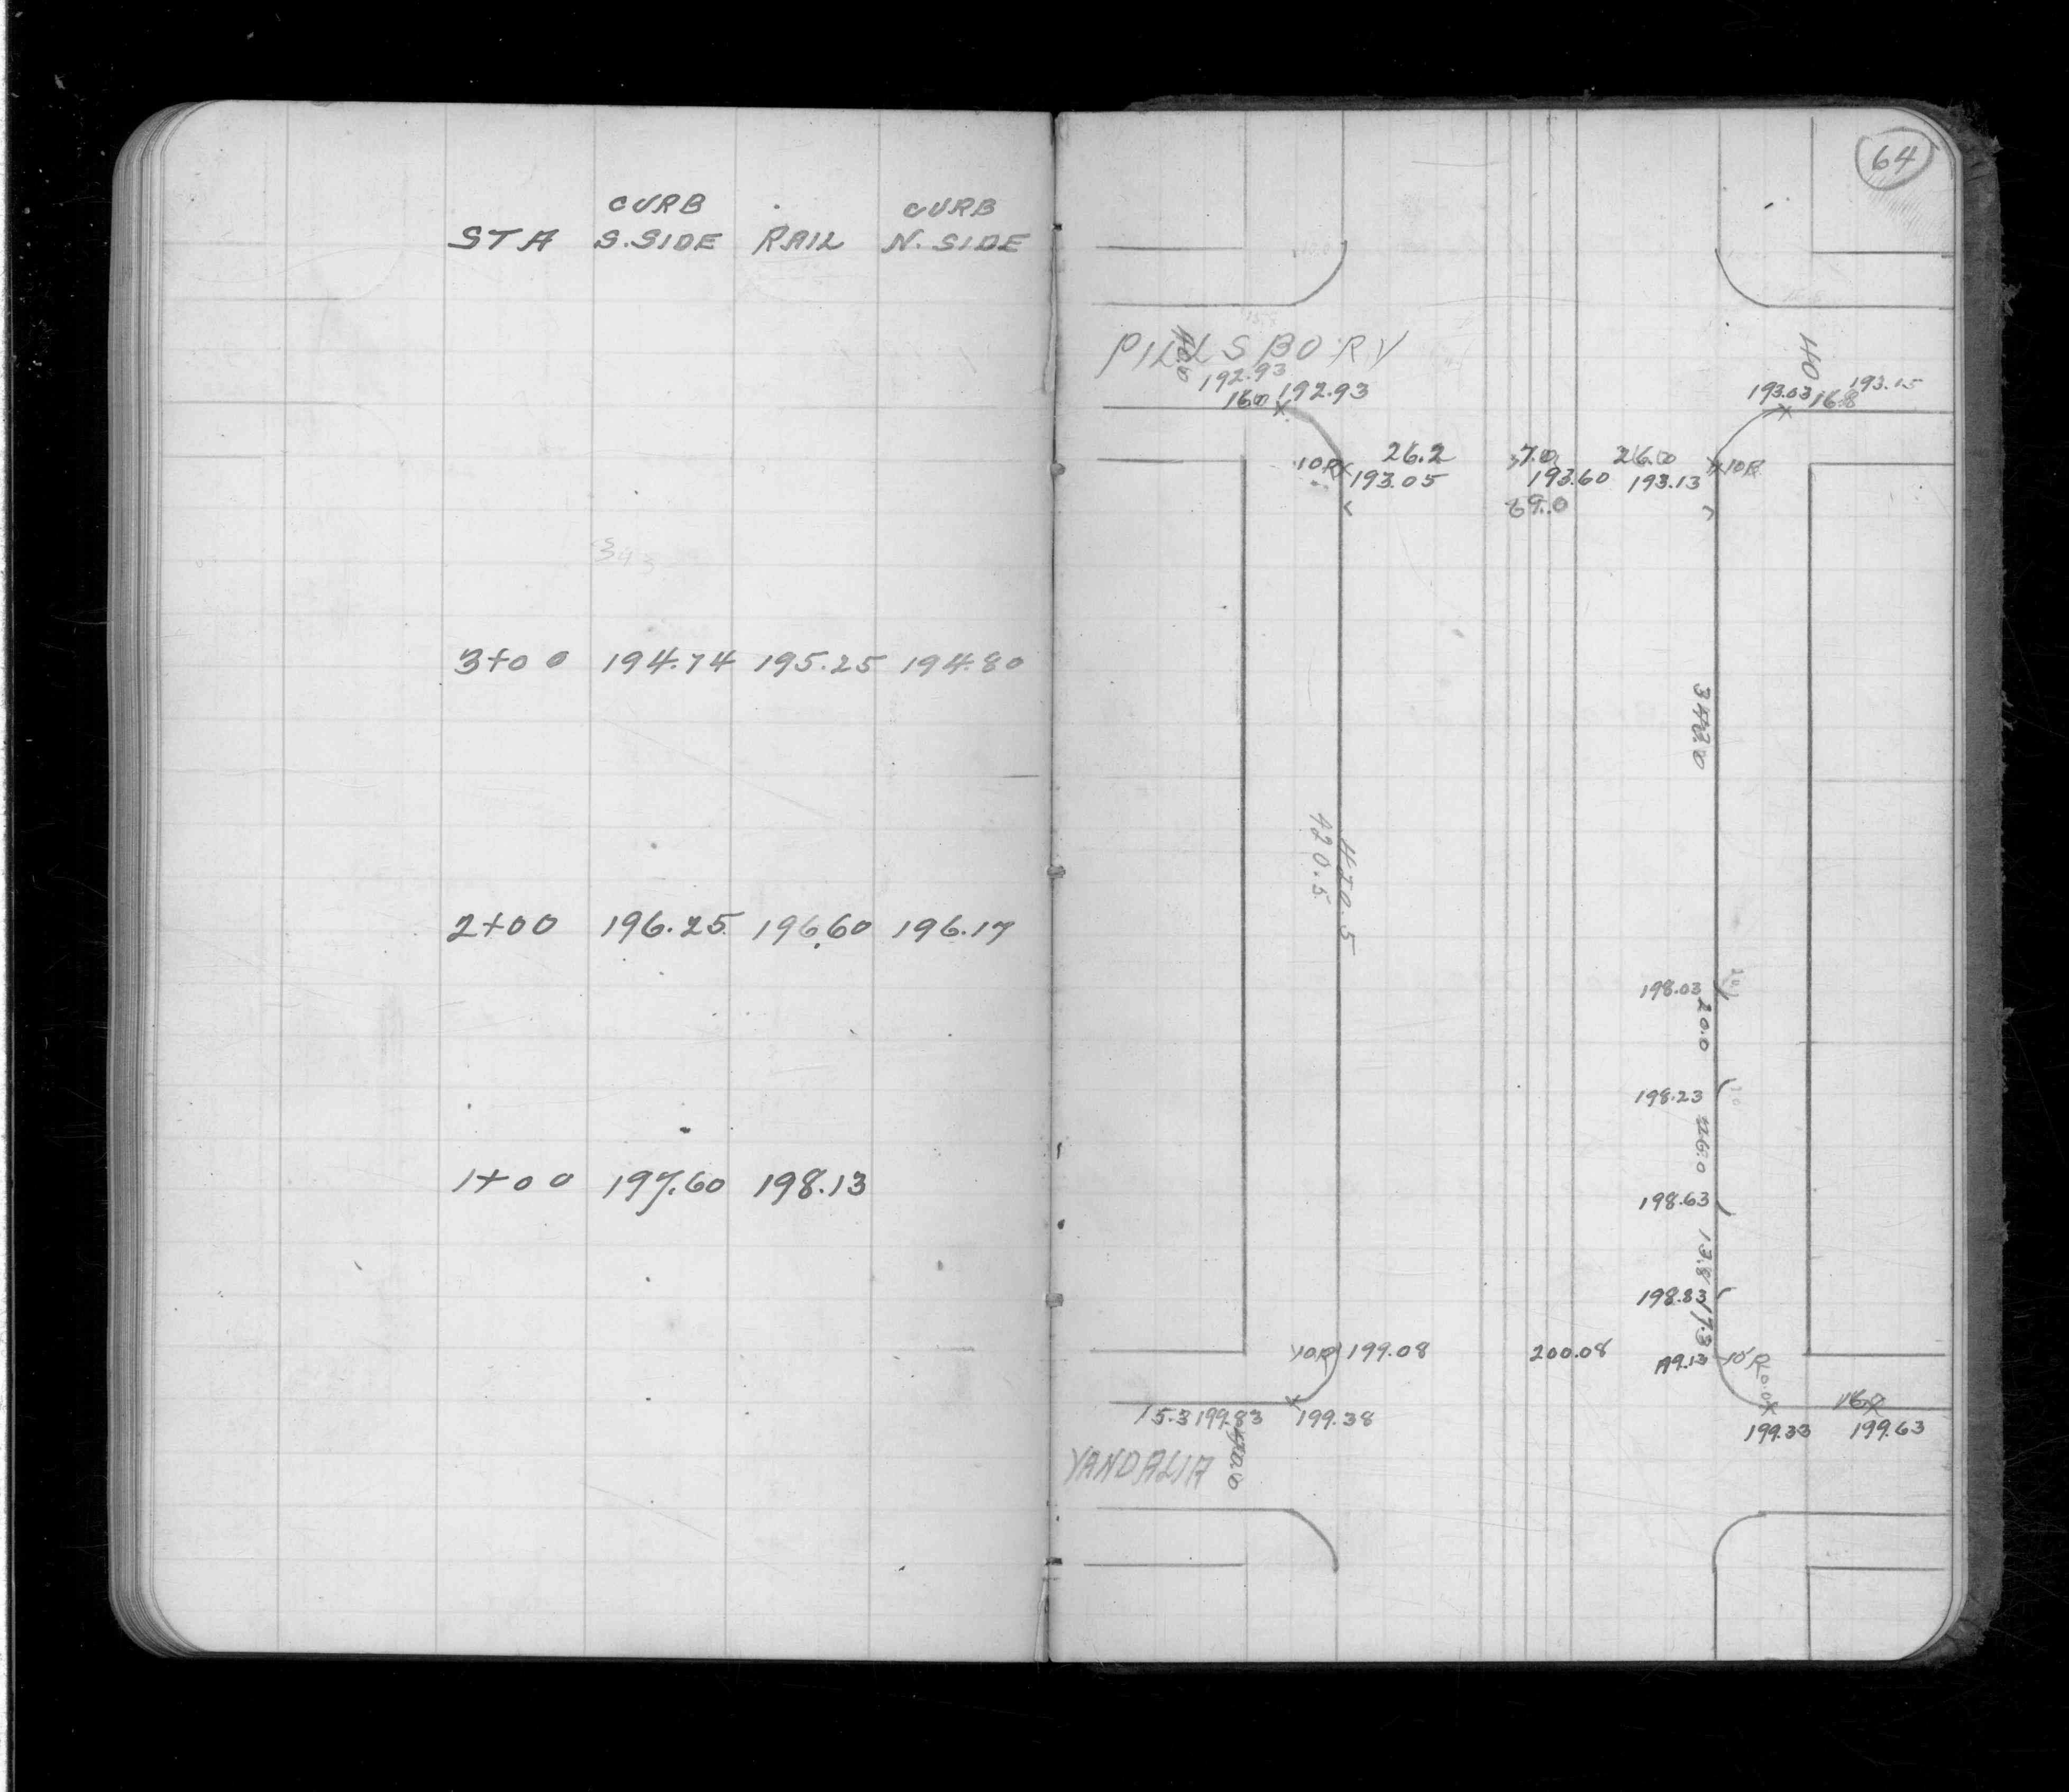 CURB CURB
STA S.SIDE RAIL N. SIDE
3+00 194.74 195.25 194.80
2+00 196.25 196.60 196.17
1+00 197.60 198.13
64
PILLSBORY
40.0 40
192.93 193.15
16.0 192.93 193.03 16.8
26.2 7.0 26.0
10R 193.05 193.60 193.13 10R
69.0
420.5
420.5
198.03
20.0
198.23
26.0
198.63
13.8
198.83
17.3
10R 199.08 200.08 199.13 10'R
15.3 199.83 199.38 199.33 199.63
VANDALIA 40.0